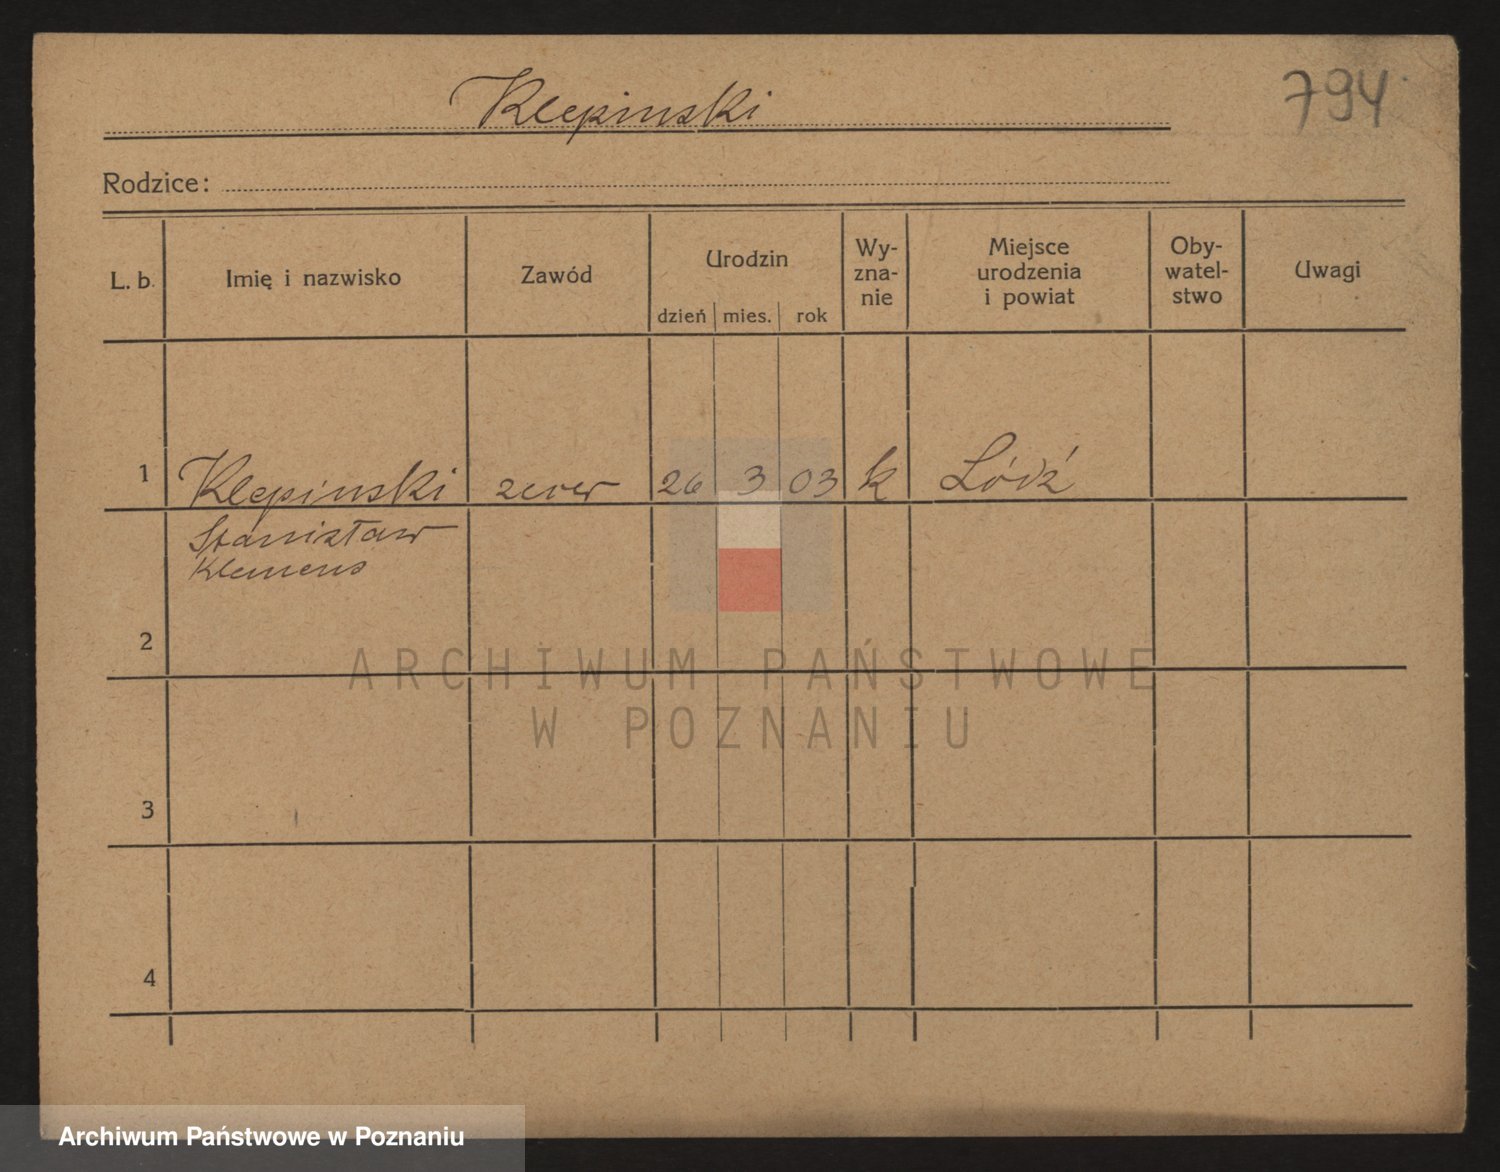 Klepinski
794
Rodzice:
L. b. Imię i nazwisko Zawód Urodzin Wy-zna-nie Miejsce urodzenia i powiat Oby-watel-stwo Uwagi
dzień mies. rok
1 Klepinski 26 3 03 k Łódź
Stanisław
Klemens
2
ARCHIWUM PAŃSTWOWE
W POZNANIU
3
4
Archiwum Państwowe w Poznaniu